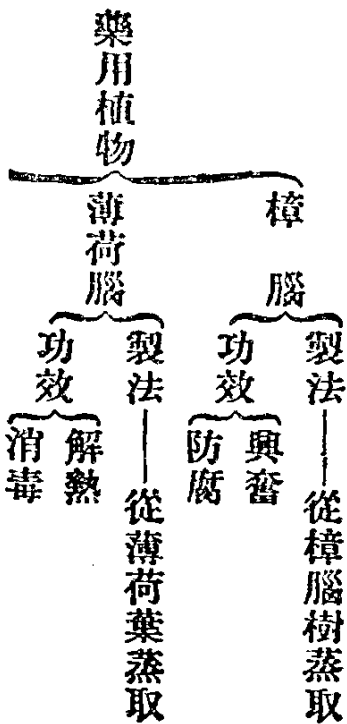 藥用植物
樟腦
製法——從樟腦樹蒸取
功效
興奮
防腐
薄荷腦
製法——從薄荷葉蒸取
功效
解熱
消毒